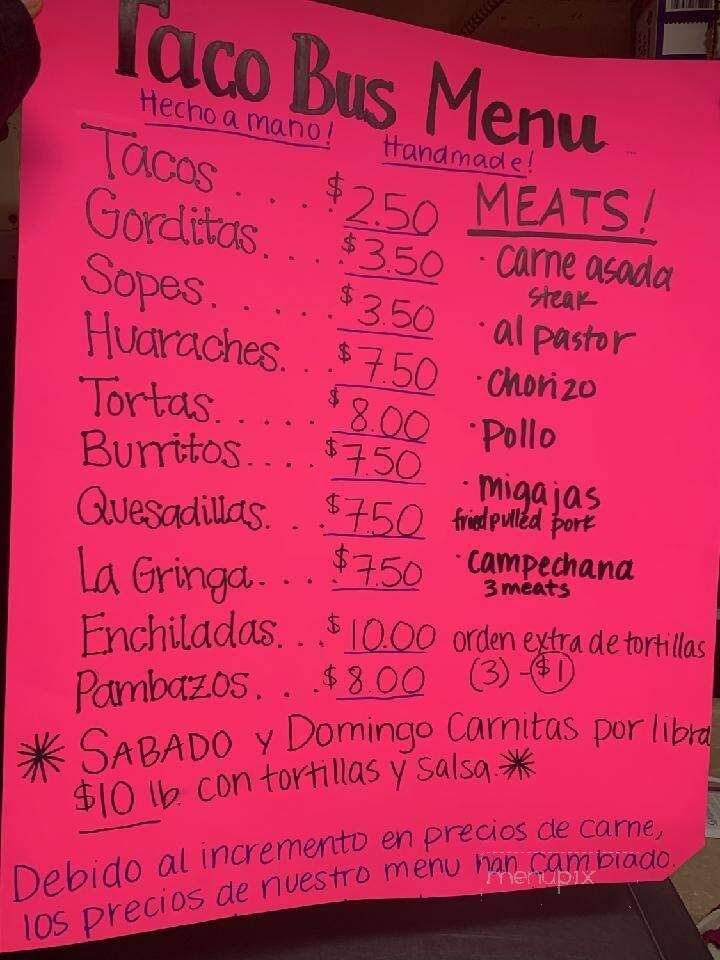 Taco Bus Menu
Hecho a mano!
Handmade!
Tacos . . . . $2.50
Gorditas . . . . $3.50
Sopes . . . . . . $3.50
Huaraches . . . $7.50
Tortas . . . . . . $8.00
Burritos . . . . $7.50
Quesadillas . . . $7.50
La Gringa . . . . $7.50
Enchiladas . . . $10.00
Pambazos . . . $8.00
MEATS!
· Carne asada
steak
· al pastor
· Chorizo
· Pollo
· migajas
fried pulled pork
· campechana
3 meats
orden extra de tortillas
(3) - $1
* SABADO y Domingo Carnitas por libra
$10 lb. con tortillas y salsa. *
Debido al incremento en precios de carne,
los precios de nuestro menu han cambiado.
menupix